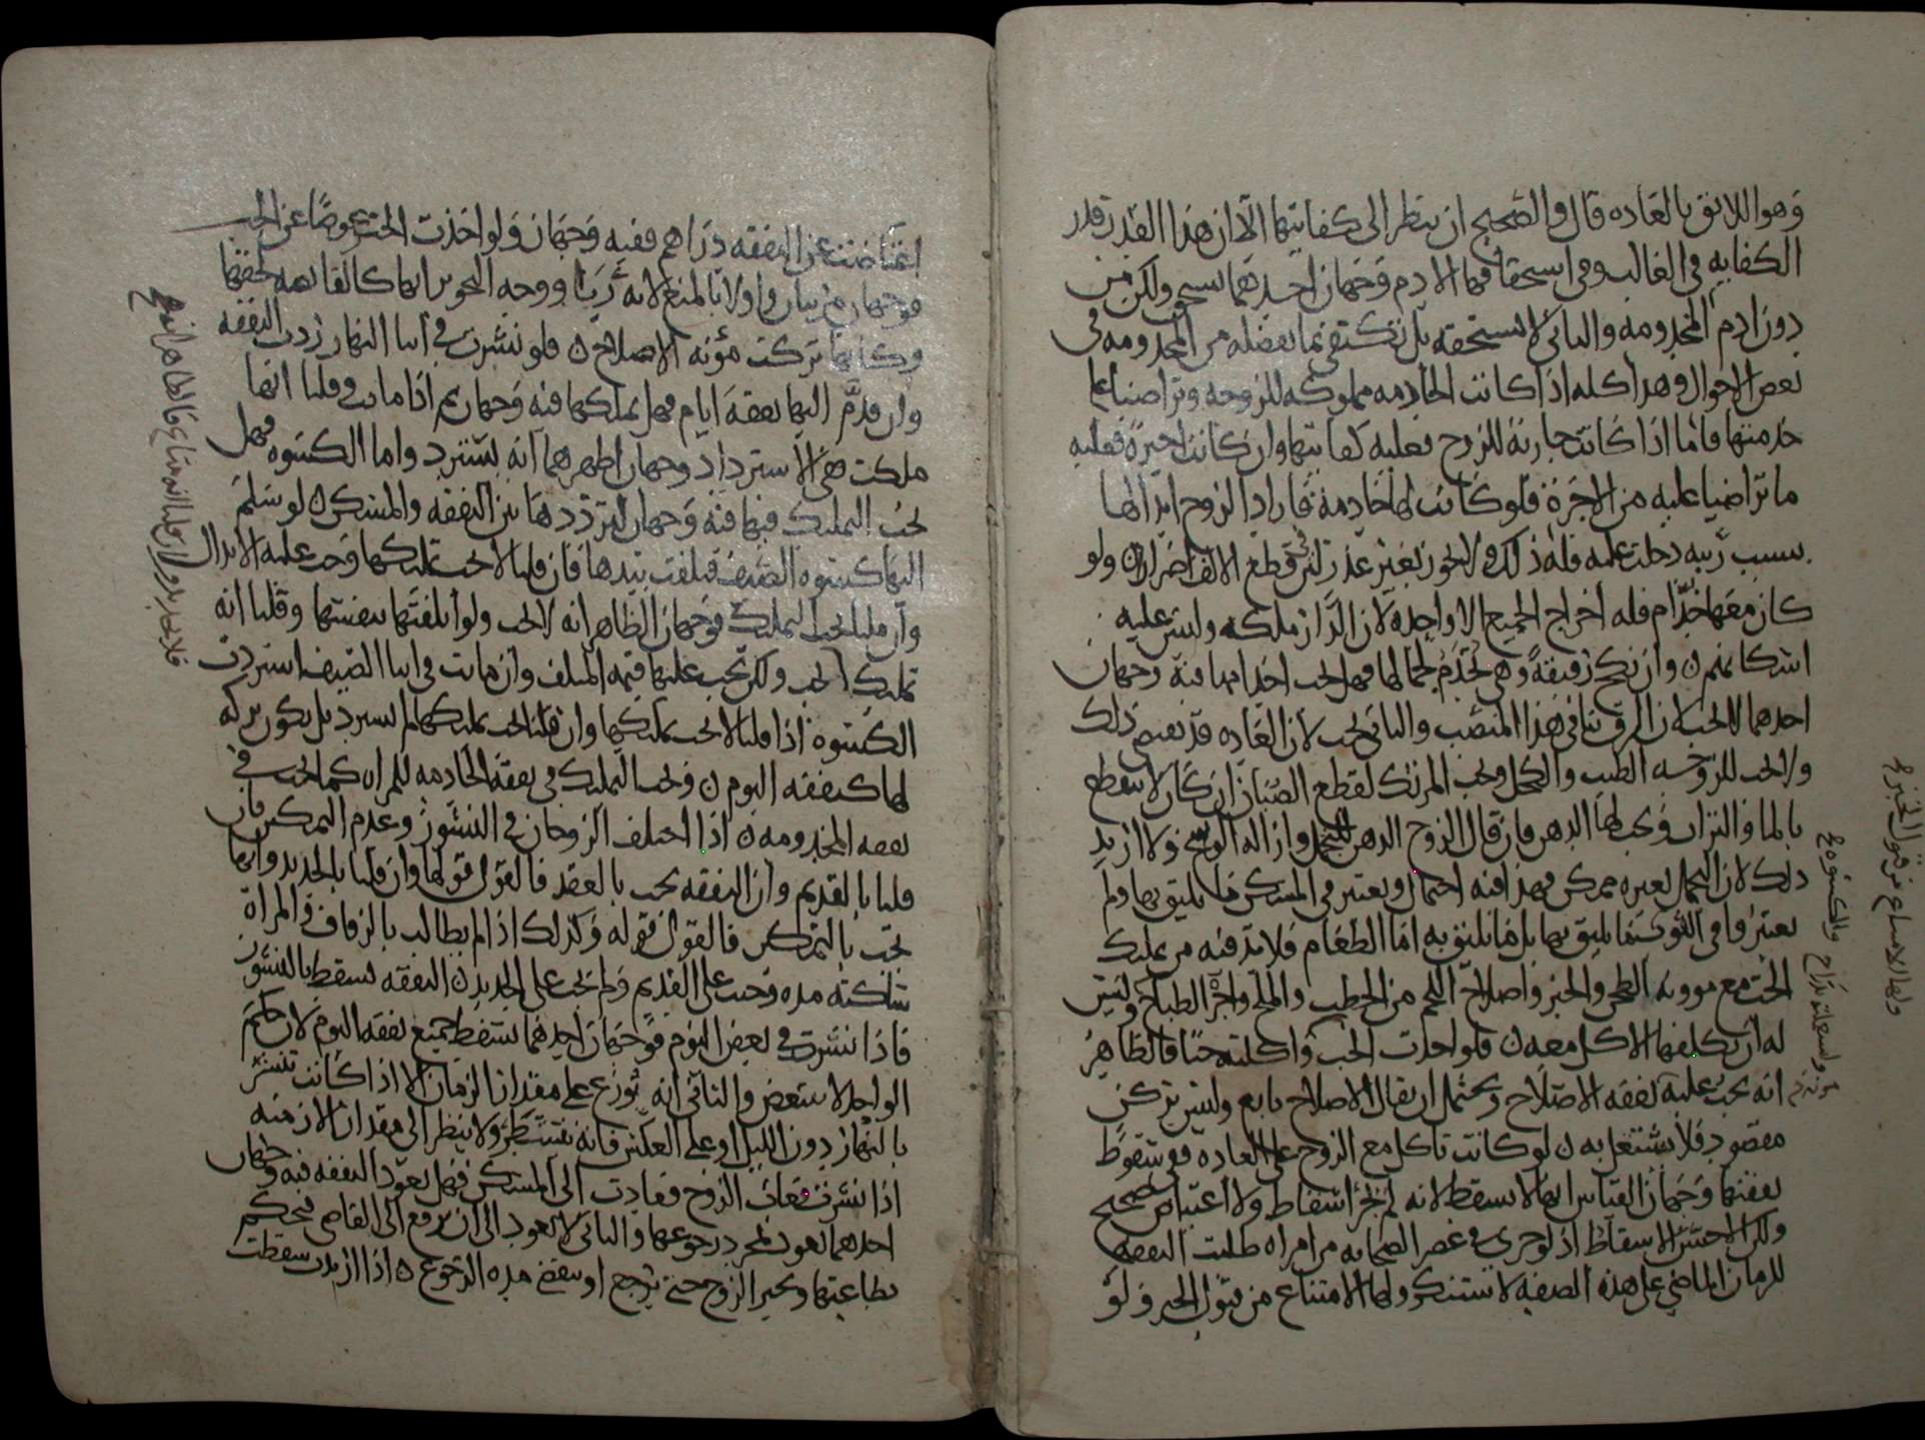 وهو اللائق بالعاده قال والصحيح ان ينظر الى كفايتها الا ان هذا القدر قدر
الكفايه في الغالب وفي استحقاقها الادم وجهان احدهما تستحق ولكن من
دون ادم المخدومه والثاني لا تستحقه بل تكتفي بما يفضل من المخدومه في
بعض الاحوال وهذا كله اذا كانت الخادمه مملوكه للزوجه وتراضيا على
خدمتها فاما اذا كانت جارية للزوج فعليه كفايتها وان كانت اجيرة فعليه
ما تراضيا عليه من الاجرة فلو كانت لها خادمة فاراد الزوج ابدالها
بسبب ريبه دخلت عليه فله ذلك ولا يجوز بغير عذر لان قطع الالف اضرار ولو
كان معها خدام فله اخراج الجميع الا واحده لان الدار ملكه وليس عليه
اسكانهم وان نكح رقيقة وهي تخدم لجمالها فهل يجب اخدامها فيه وجهان
احدهما لا يجب لان الرق ينافي هذا المنصب والثاني يجب لان العاده قد تقتضي ذلك
ولا يجب للزوجه الطيب والكحل ويجب المرتك لقطع الصنان ان كان لا ينقطع
بالما والتراب ويجب لها الدهن فان قال الزوج الدهن للتجمل وازالة الوسخ ولا اريد
ذلك لان التجمل بغيره ممكن فهذا فيه احتمال ويعتبر في المسكن ما يليق بها ولم
يعتبروا في الثوب ما يليق بها بل ما يليق به اما الطعام فلا بد فيه من تمليك
الحب مع موونه الطحن والخبز واصلاح اللحم من الحطب والملح واجرة الطباخ وليس
له ان يكلفها الاكل معه فلو اخذت الحب واكلته حبا فالظاهر
انه يجب عليه نفقه الاصلاح ويحتمل ان يقال الاصلاح تابع وليس بركن
مقصود فلا يستقل به لو كانت تاكل مع الزوج على العاده ففي سقوط
نفقتها وجهان القياس انها لا تسقط لانه لم يجر اسقاط ولا اعتياض صحيح
ولكن الاحسن الاسقاط اذ لو جرى في عصر الصحابه من امراه طلبت النفقه
للزمان الماضي على هذه الصفه لاستنكر ولها الامتناع من قبول الخبز ولو
ولها الامتناع من قبول الخبز
اعتاضت عن النفقه دراهم ففيه وجهان ولو اخذت الخبز عوضا عن الحب
فوجهان مرتبان واولى بالمنع لانه ربا ووجه التجويز انها كالقابضه لحقها
وكانها تركت مؤنه الاصلاح فلو نشزت في اثنا النهار ردت النفقه
وان قدم اليها نفقة ايام فهل تملكها فيه وجهان ثم اذا ماتت وقلنا انها
ملكت ففي الاسترداد وجهان اظهرهما انه يسترد واما الكسوه فهل
يجب التمليك فيها فيه وجهان لترددها بين النفقه والمسكن لو سلم
اليها كسوه الصيف فتلفت بيدها فان قلنا لا يجب تمليكها وجب عليه الابدال
وان قلنا يجب التمليك فوجهان الظاهر انه لا يجب ولو اتلفتها بنفسها وقلنا انه
تمليك لا يجب ولكن يجب عليها قيمه المتلف وان ماتت في اثنا الصيف استردت
الكسوه اذا قلنا لا يجب تمليكها وان قلنا يجب تمليكها لم تسترد بل يكون تركه
لها كنفقه اليوم ويجب التمليك في نفقة الخادمه للمراه كما يجب في
نفقه المخدومه اذا اختلف الزوجان في النشوز وعدم التمكين فان
قلنا بالقديم وان النفقه تجب بالعقد فالقول قولها وان قلنا بالجديد وانها
تجب بالتمكين فالقول قوله وكذلك اذا لم يطالب بالزفاف والمراة
ساكته مده وجب على القديم ولم يجب على الجديد النفقه تسقط بالنشوز
فاذا نشزت في بعض اليوم فوجهان احدهما تسقط جميع نفقه اليوم لان حكم
الواحد لا يتبعض والثاني انه توزع على مقدار الزمان الا اذا كانت تنشز
بالنهار دون الليل او على العكس فانه يتشطر ولا ينظر الى مقدار الازمنه
اذا نشزت فغاب الزوج فعادت الى المسكن فهل تعود النفقه فيه وجهان
احدهما تعود بمجرد رجوعها والثاني لا تعود الى ان يرفع الى القاضي فيحكم
بطاعتها ويخبر الزوج حتى يرجع او تنقضي مده الرجوع اذا ارتدت سقطت